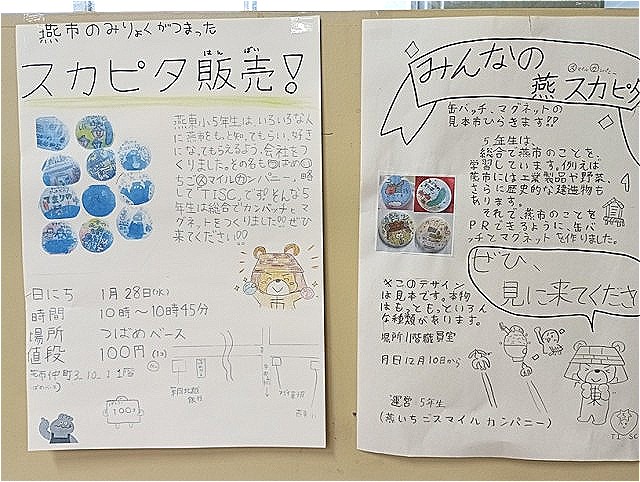 燕市のみりょくがつまった
スカピタ販売!
はん ばい
燕東小5年生は、いろいろな人
に燕をもっと知ってもらい、好きに
なってもらえるよう、会社をつ
くりました。その名も
ちこスマイルカンパニー。略
してTISC。です!そんな5
年生は総合でカンバッチとマ
グネットをつくりました!!ぜひ
来てください!!
日にち 1月28日(水)
時間 10時〜10時45分
場所 つばめベース
値段 100円(1コ)
100
市
みんなの
燕 スカピタ
缶バッチ、マグネットの
見本市ひらきます!!
5年生は、
総合で燕市のことを、
学習しています。例えば
燕市には工業製品や野菜、
さらに歴史的な建造物も
あります。
それで、燕市のことを
PRできるように、缶バ
ッチとマグネットを作りました。
ぜひ、
見に来てくださ
※このデザイン
は見本です。本物
はもっともっといろん
な種類があります。
場所 1階職員室
月日 12月10日から
運営 5年生
(燕いちごスマイルカンパニー)
TISC